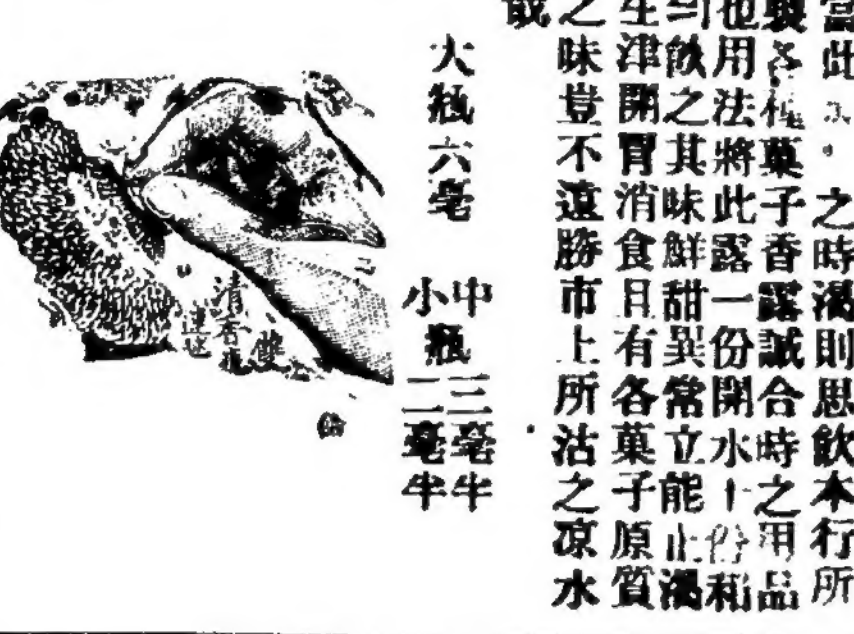 當此之時渴則思飲本行所
製各種菓子香露誠合時之用品
也用法將此露一份開水十份和
勻飲之其味鮮甜異常立能止渴
生津開胃消食且有各菓子原質
之味豈不遠勝市上所沽之凉水
哉
大瓶六毫
中瓶三毫半
小瓶二毫半
雙
清香